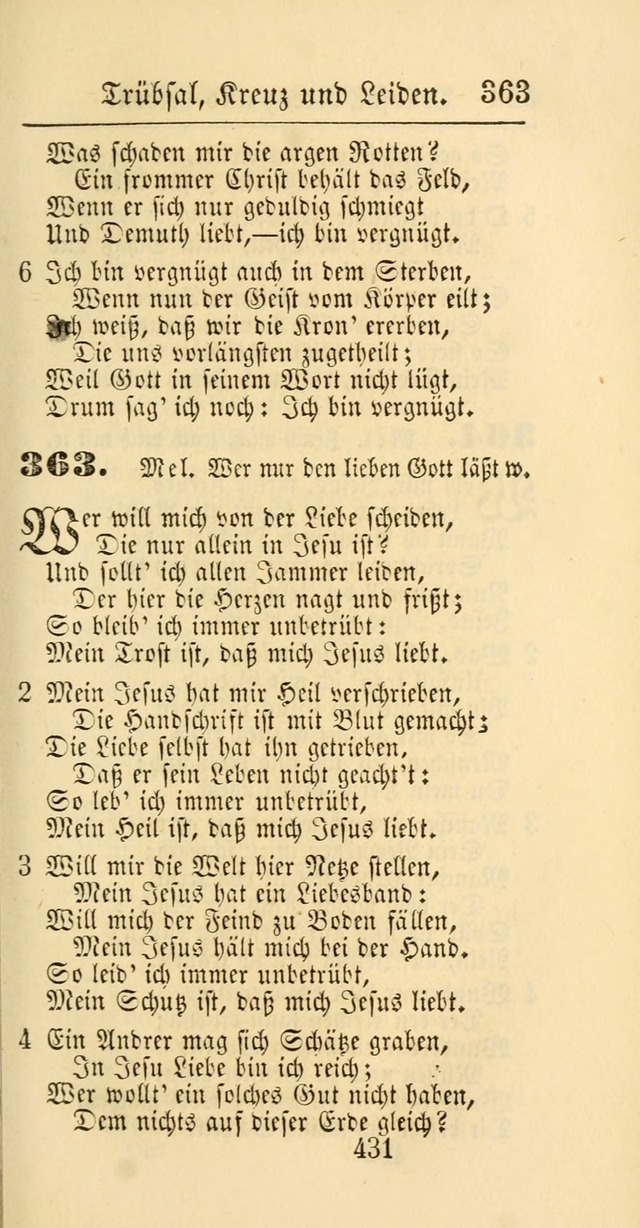 Trübsal, Kreuz und Leiden. 363
Was schaden mir die argen Rotten?
Ein frommer Christ behält das Feld,
Wenn er sich nur geduldig schmiegt
Und Demuth liebt,—ich bin vergnügt.
6 Ich bin vergnügt auch in dem Sterben,
Wenn nun der Geist vom Körper eilt;
Ich weiß, daß wir die Kron' ererben,
Die uns vorlängsten zugetheilt;
Weil Gott in seinem Wort nicht lügt,
Drum sag' ich noch: Ich bin vergnügt.
363. Mel. Wer nur den lieben Gott läßt w.
Wer will mich von der Liebe scheiden,
Die nur allein in Jesu ist?
Und sollt' ich allen Jammer leiden,
Der hier die Herzen nagt und frißt;
So bleib' ich immer unbetrübt:
Mein Trost ist, daß mich Jesus liebt.
2 Mein Jesus hat mir Heil verschrieben,
Die Handschrift ist mit Blut gemacht;
Die Liebe selbst hat ihn getrieben,
Daß er sein Leben nicht geacht't:
So leb' ich immer unbetrübt,
Mein Heil ist, daß mich Jesus liebt.
3 Will mir die Welt hier Netze stellen,
Mein Jesus hat ein Liebesband:
Will mich der Feind zu Boden fällen,
Mein Jesus hält mich bei der Hand.
So leid' ich immer unbetrübt,
Mein Schutz ist, daß mich Jesus liebt.
4 Ein Andrer mag sich Schätze graben,
In Jesu Liebe bin ich reich;
Wer wollt' ein solches Gut nicht haben,
Dem nichts auf dieser Erde gleich?
431